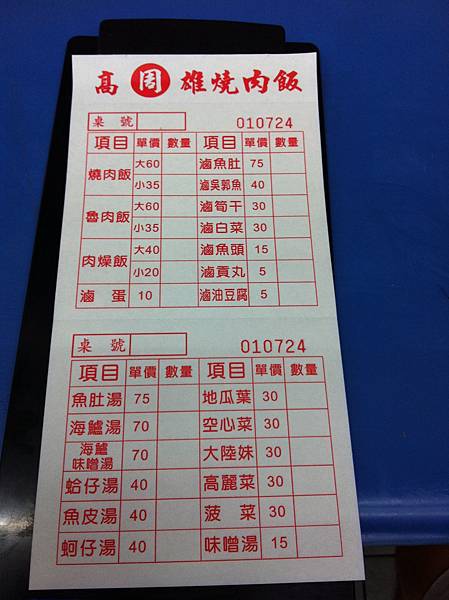 高 周 雄燒肉飯
桌 號 010724
項目 單價 數量 項目 單價 數量
燒肉飯 大60 滷魚肚 75
小35 滷吳郭魚 40
魯肉飯 大60 滷筍干 30
小35 滷白菜 30
肉燥飯 大40 滷魚頭 15
小20 滷貢丸 5
滷 蛋 10 滷油豆腐 5
桌 號 010724
項目 單價 數量 項目 單價 數量
魚肚湯 75 地瓜葉 30
海鱸湯 70 空心菜 30
海鱸味噌湯 70 大陸妹 30
蛤仔湯 40 高麗菜 30
魚皮湯 40 菠 菜 30
蚵仔湯 40 味噌湯 15